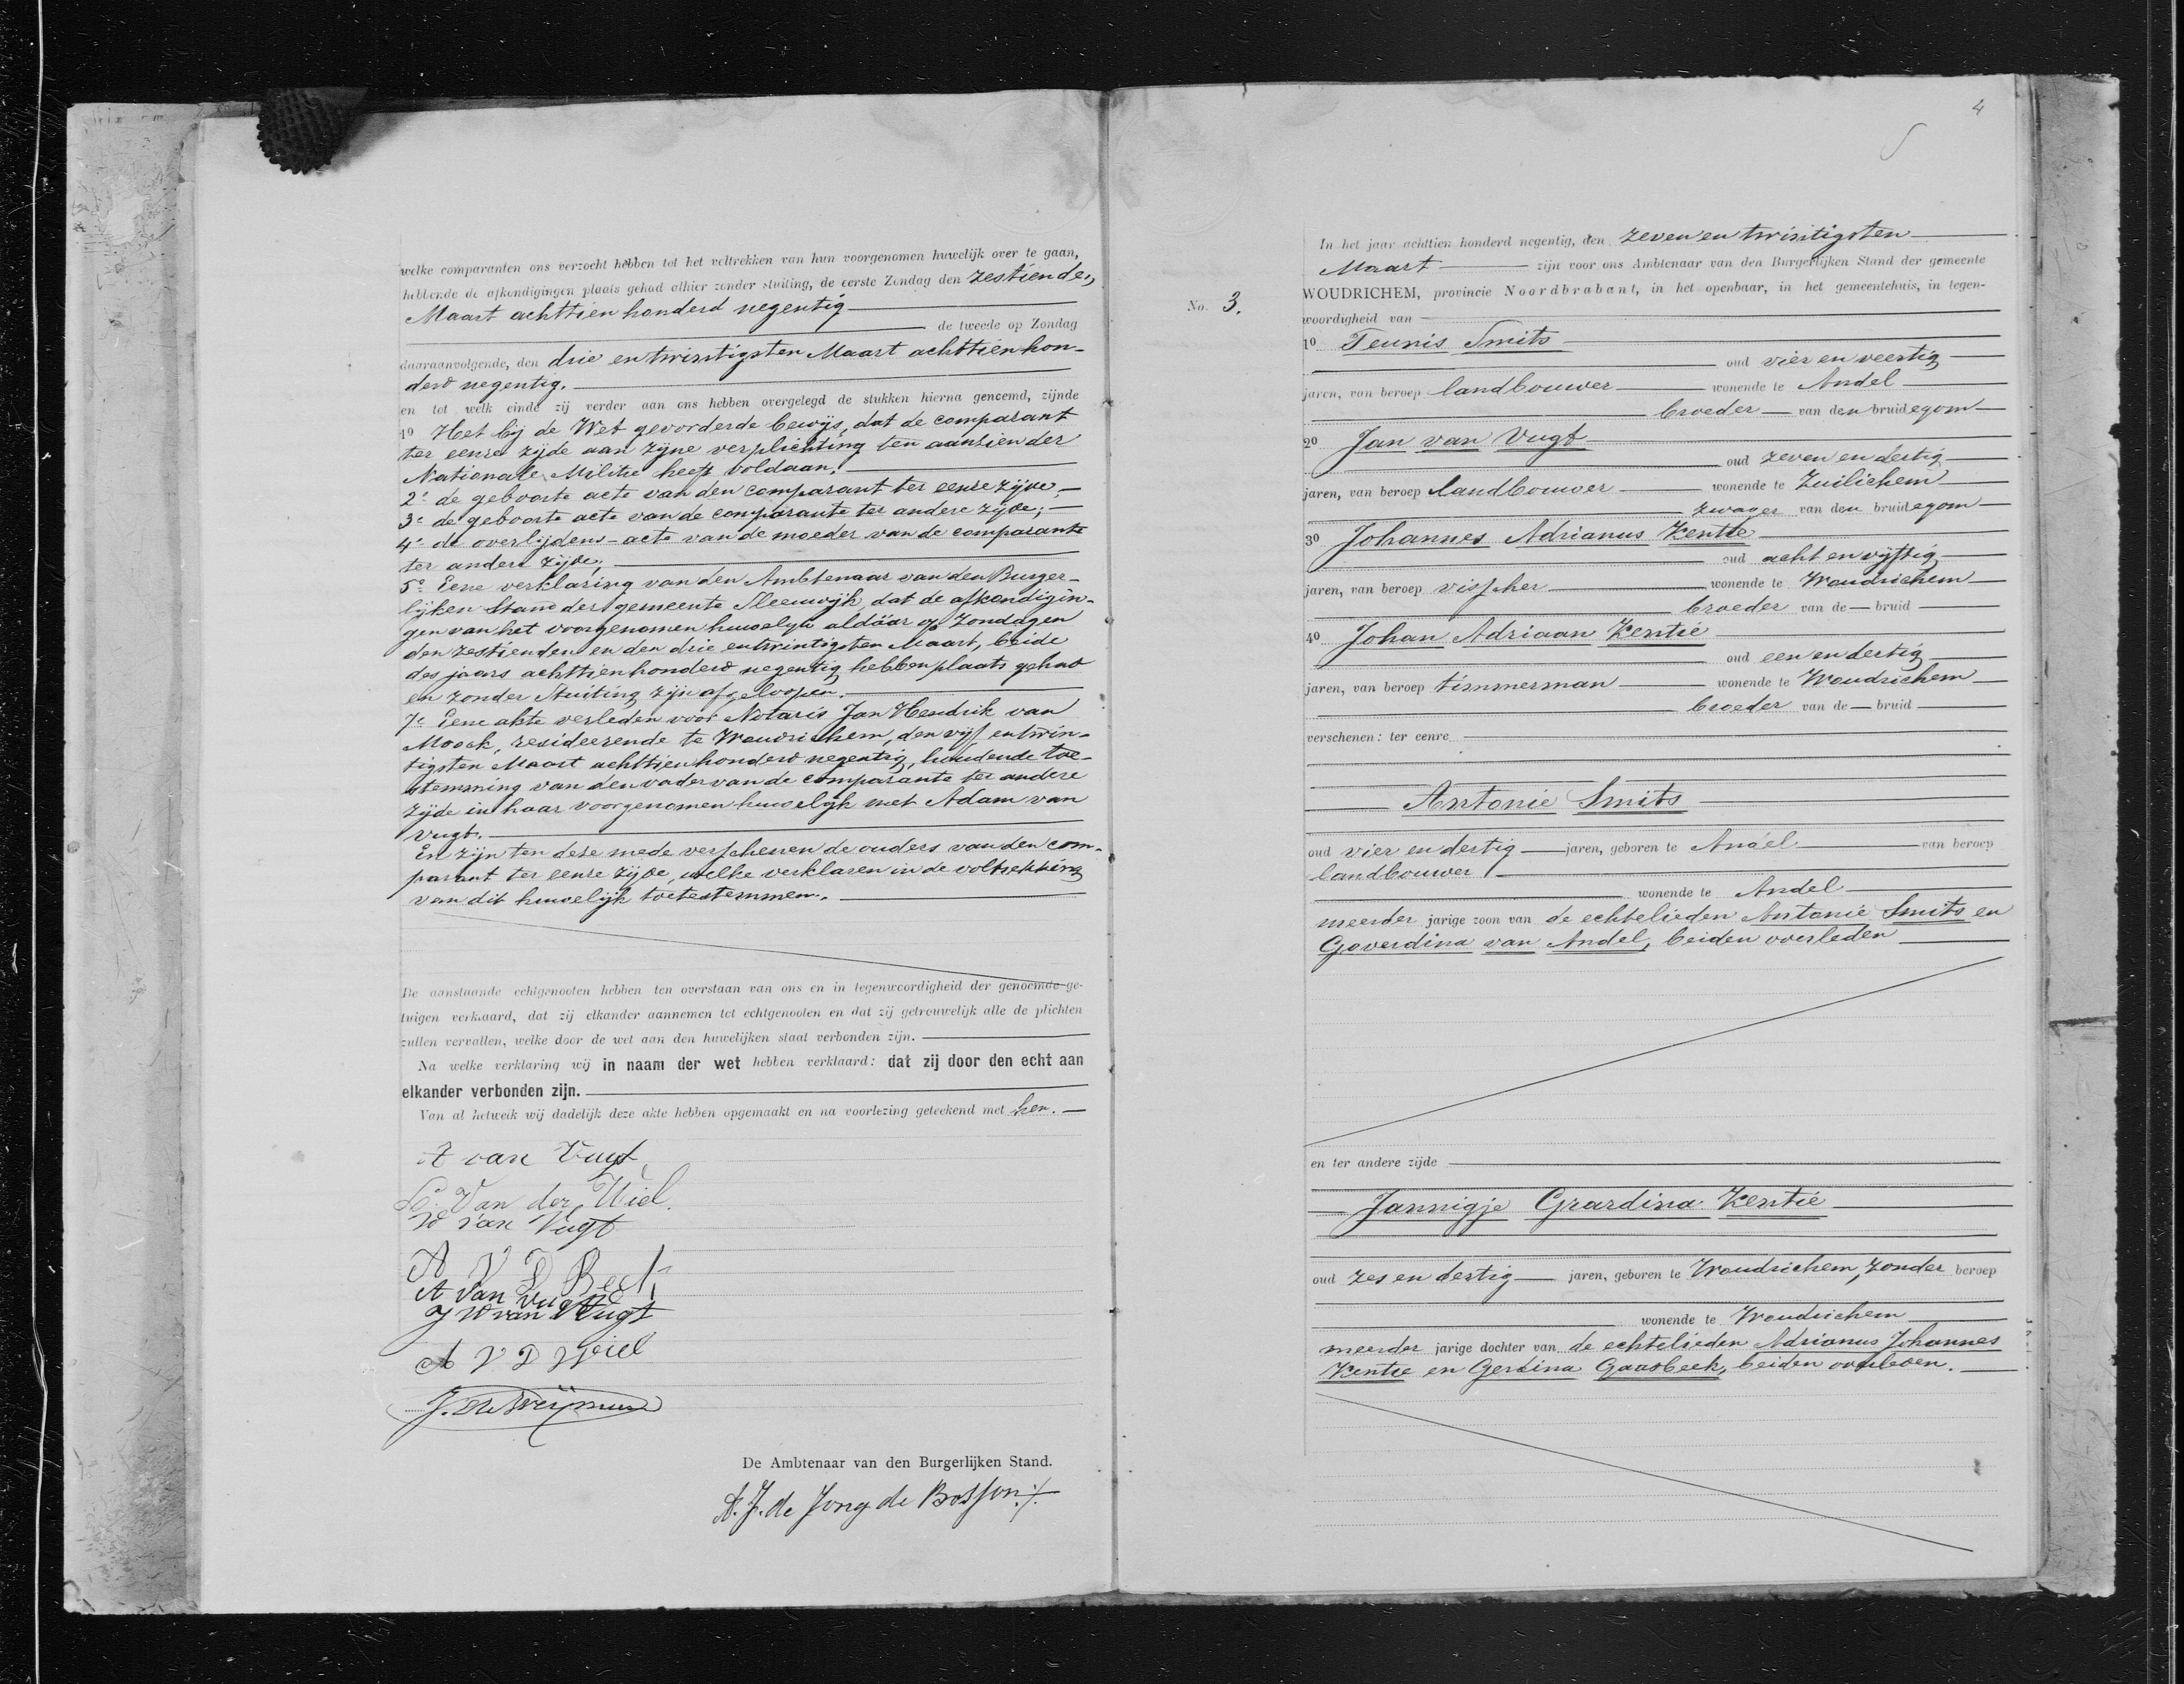 welke comparanten ons verzocht hebben tot het voltrekken van hun voorgenomen huwelijk over te gaan,
hebbende de afkondigingen plaats gehad alhier zonder stuiting, de eerste Zondag den zestienden
Maart achttien honderd negentig
de tweede op Zondag
daaraanvolgende, den drie en twintigsten Maart achttienhon-
derd negentig.
en tot welk einde zij verder aan ons hebben overgelegd de stukken hierna genoemd, zijnde
1o Het bij de Wet gevorderde bewijs, dat de comparant
ter eenre zijde aan zijne verplichting ten aanzien der
Nationale Militie heeft voldaan.
2e de geboorte acte van den comparant ter eenre zijde;
3e de geboorte acte van de comparante ter andere zijde;
4e de overlijdens-acte van de moeder van de comparante
ter andere zijde;
5e Eene verklaring van den Ambtenaar van den Burger-
lijken Stand der gemeente Sleeuwijk, dat de afkondigin-
gen van het voorgenomen huwelijk aldáár op Zondagen
den zestienden en den drie en twintigsten Maart, beide
des jaars achttienhonderd negentig hebben plaats gehad
en zonder stuiting zijn afgeloopen.
7e Eene akte verleden voor Notaris Jan Hendrik van
Moock, resideerende te Woudrichem, den vijf en twin-
tigsten Maart achttienhonderd negentig, houdende toe-
stemming van den vader van de comparante ter andere
zijde in haar voorgenomen huwelijk met Adam van
Vugt.
En zijn ten deze mede verschenen de ouders van den com-
parant ter eenre zijde, welke verklaren in de voltrekking
van dit huwelijk toetestemmen.
De aanstaande echtgenooten hebben ten overstaan van ons en in tegenwoordigheid der genoemde ge-
tuigen verklaard, dat zij elkander aannemen tot echtgenooten en dat zij getrouwelijk alle de plichten
zullen vervullen, welke door de wet aan den huwelijken staat verbonden zijn.
Na welke verklaring wij in naam der wet hebben verklaard: dat zij door den echt aan
elkander verbonden zijn.
Van al hetwelk wij dadelijk deze akte hebben opgemaakt en na voorlezing geteekend met hen.
A van Vugt
Van der Wiel
W van Vugt
A V D Beek
A van Vugt
J W van Vugt
A V D Wiel
De Ambtenaar van den Burgerlijken Stand.
A. J. de Jong de Bosson
4
No. 3.
In het jaar achttien honderd negentig, den zeven en twintigsten
Maart zijn voor ons Ambtenaar van den Burgerlijken Stand der gemeente
WOUDRICHEM, provincie Noordbrabant, in het openbaar, in het gemeentehuis, in tegen-
woordigheid van
1o Teunis Smits
oud vier en veertig
jaren, van beroep landbouwer wonende te Andel
broeder van den bruidegom
2o Jan van Vugt
oud zeven en dertig
jaren, van beroep landbouwer wonende te Zuilichem
zwager van den bruidegom
3o Johannes Adrianus Kentie
oud acht en vijftig
jaren, van beroep visscher wonende te Woudrichem
broeder van de bruid
4o Johan Adriaan Kentie
oud een en dertig
jaren, van beroep timmerman wonende te Woudrichem
broeder van de bruid
verschenen: ter eenre
Antonie Smits
oud vier en dertig jaren, geboren te Andel van beroep
landbouwer
wonende te Andel
meerder jarige zoon van de echtelieden Antonie Smits en
Goverdina van Andel, beiden overleden
en ter andere zijde
Jannigje Grardina Kentie
oud zes en dertig jaren, geboren te Woudrichem, zonder beroep
wonende te Woudrichem
meerder jarige dochter van de echtelieden Adrianus Johannes
Kentie en Gerdina Gaasbeek, beiden overleden.